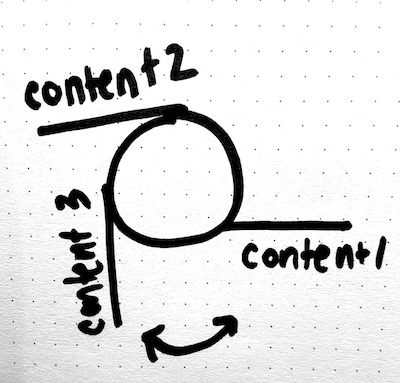 content 2
content 3
content 1